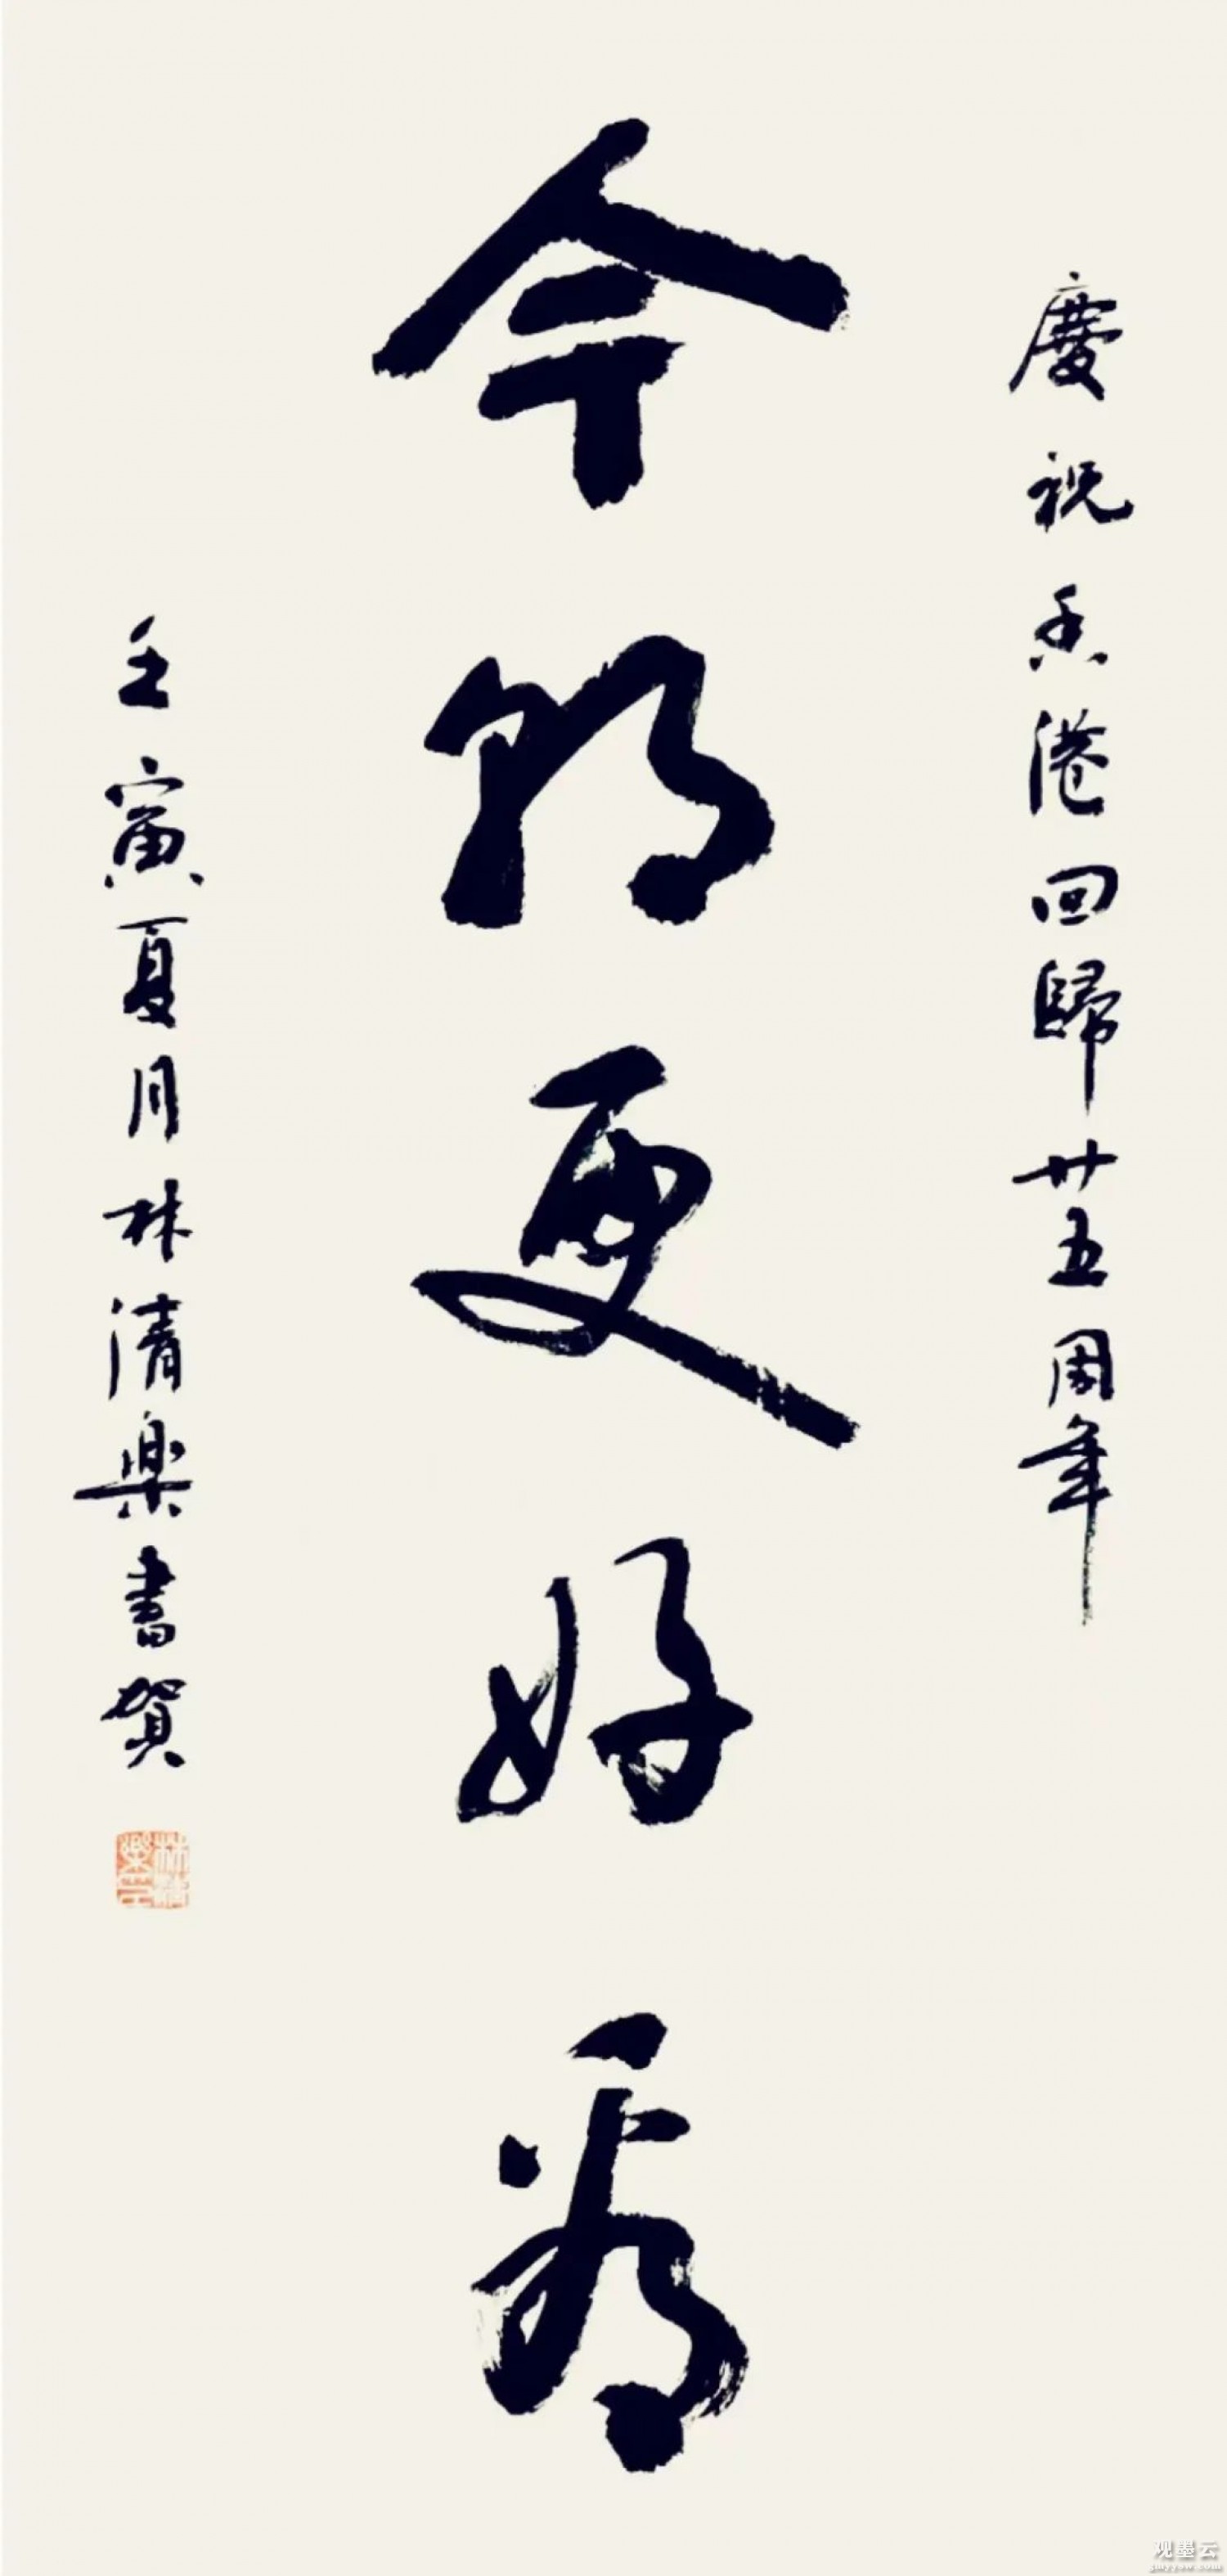 慶祝香港回歸廿五周年
今朝更好看
壬寅夏月林清樂書賀
观墨云